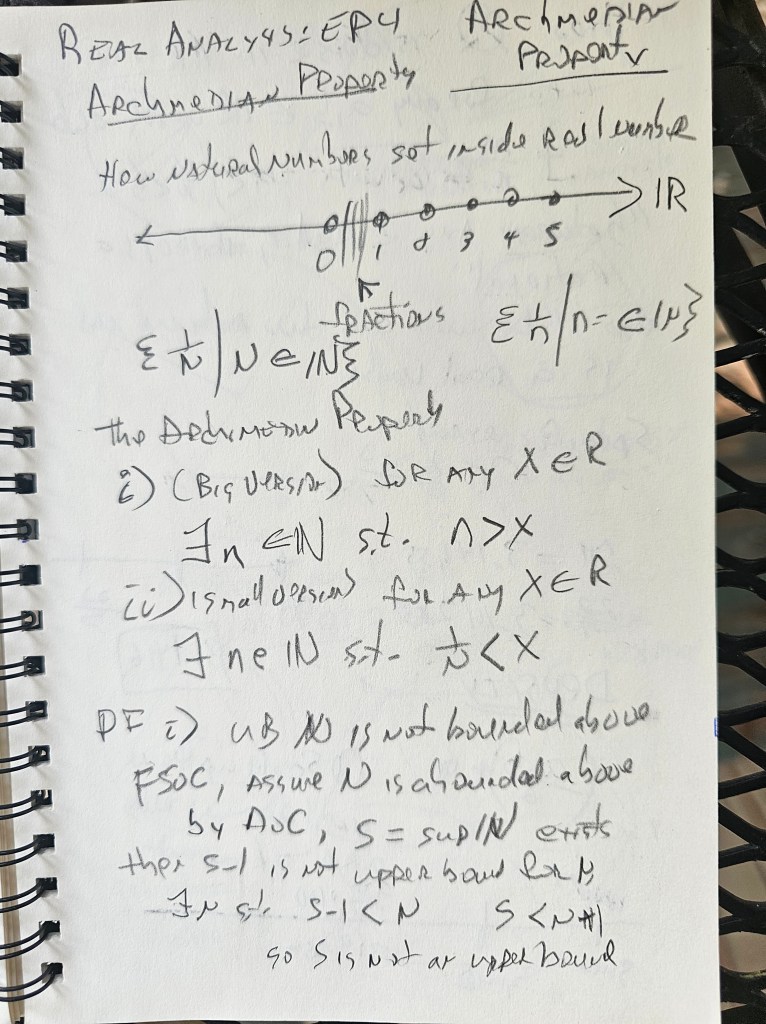 REAL ANALYSIS: EP4
ARchmEDIAN PROPERTY
ARchmEDIAN PROPERTY
How NATURAL NUMBERS set inside REAL Number
0 1 2 3 4 5 ℝ
fRActions
{ 1/N | N ∈ ℕ }
{ 1/n | n = ∈ ℕ }
the ARchimedian Property
i) (Big Version) for ANY X ∈ R
∃n ∈ ℕ s.t. n > X
ii) (small version) for ANY X ∈ R
∃ n ∈ ℕ s.t. 1/N < X
PF i) UB ℕ is not bounded above
FSOC, Assume N is abounded above
by AoC, S = sup ℕ exists
then S-1 is not upper bound for N
∃N s.t. S-1 < N S < N+1
so S is not an upper bound